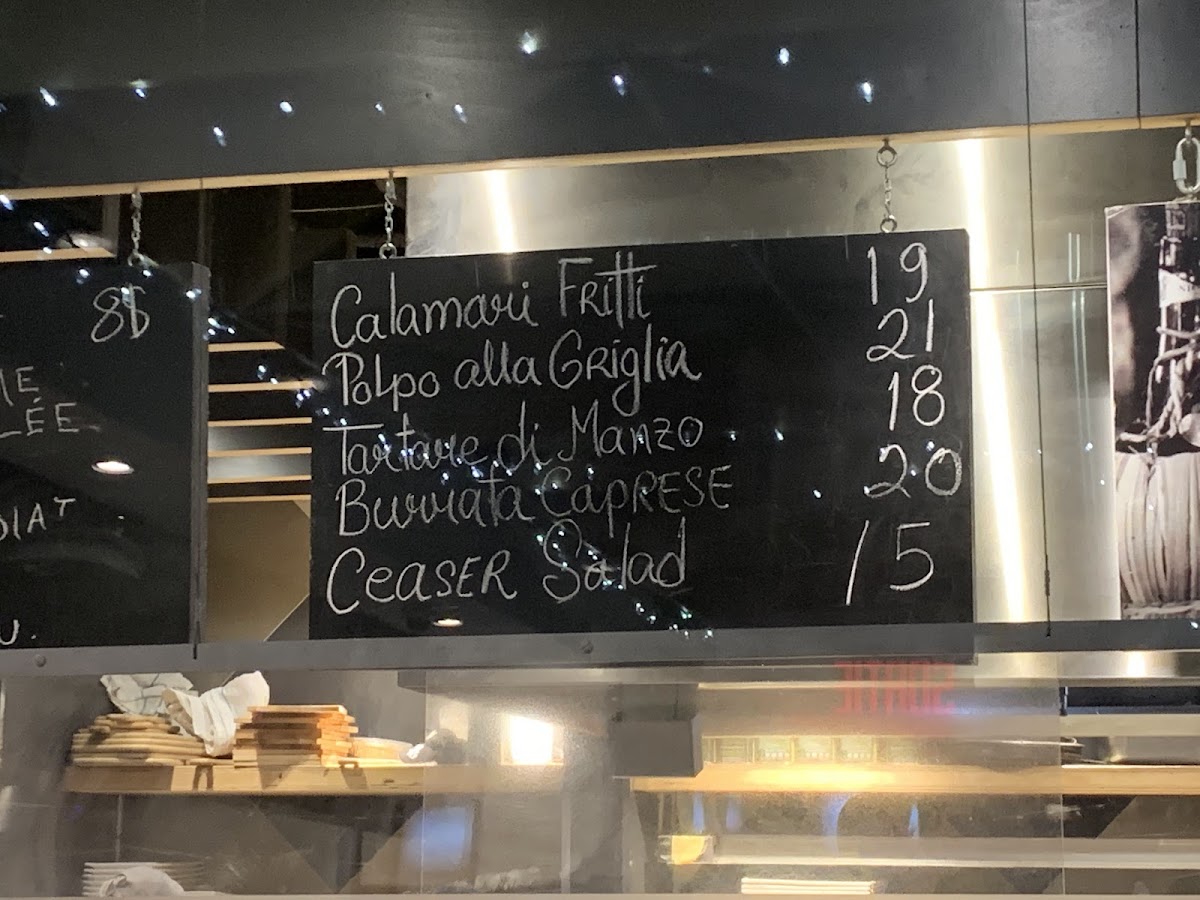 8$
LÉE
Calamari FRitti 19
Polpo alla GRiglia 21
Tartare di Manzo 18
Burrata CAPRESE 20
CEASER Salad 15